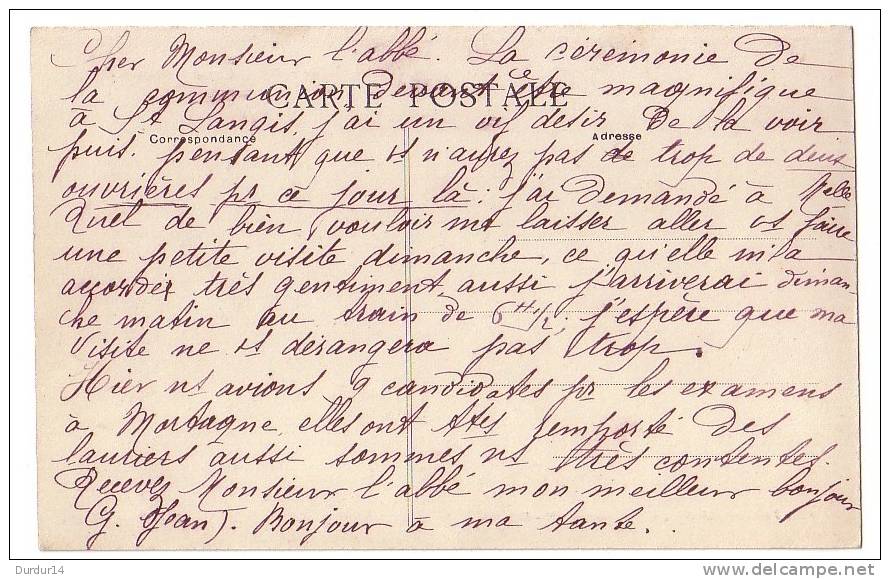 Cher Monsieur l'abbé. La cérémonie de
la communion devant être magnifique
CARTE POSTALE
à St Langis, j'ai un vif désir de la voir
Correspondance
Adresse
puis, pensant que vs n'aurez pas de trop de deux
ouvrières pr ce jour là : j'ai demandé à Melle
de bien vouloir me laisser aller vs faire
une petite visite dimanche, ce qu'elle m'a
accordé très gentiment aussi j'arriverai diman-
che matin au train de 6H 1/2, j'espère que ma
visite ne vs dérangera pas trop.
Hier ns avions 9 candidates pr les examens
à Mortagne, elles ont ttes remporté des
lauriers aussi sommes ns très contentes.
Recevez Monsieur l'abbé mon meilleur bonjour
G. Bonjour à ma tante.
Durdur14
www.delcampe.net